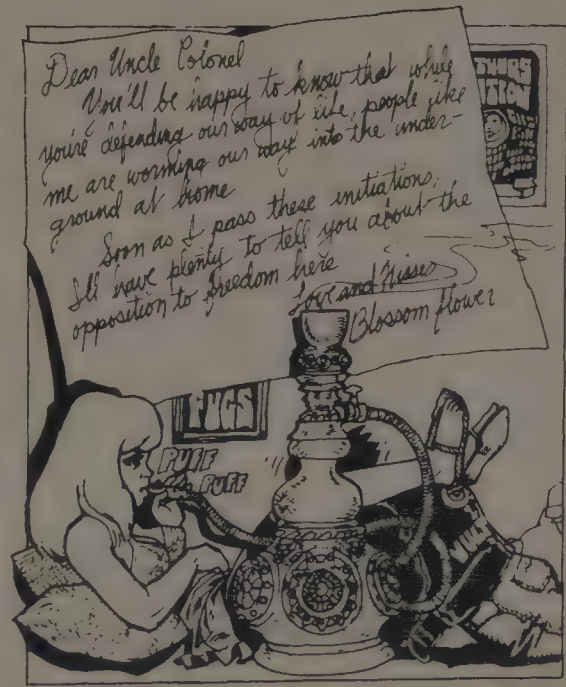 Dear Uncle Colonel
You'll be happy to know that while
you're defending our way of life, people like
me are worming our way into the under-
ground at home
Soon as I pass these initiations,
I'll have plenty to tell you about the
opposition to freedom here
Love and Kisses
Blossom flower
FUGS
PUFF
PUFF